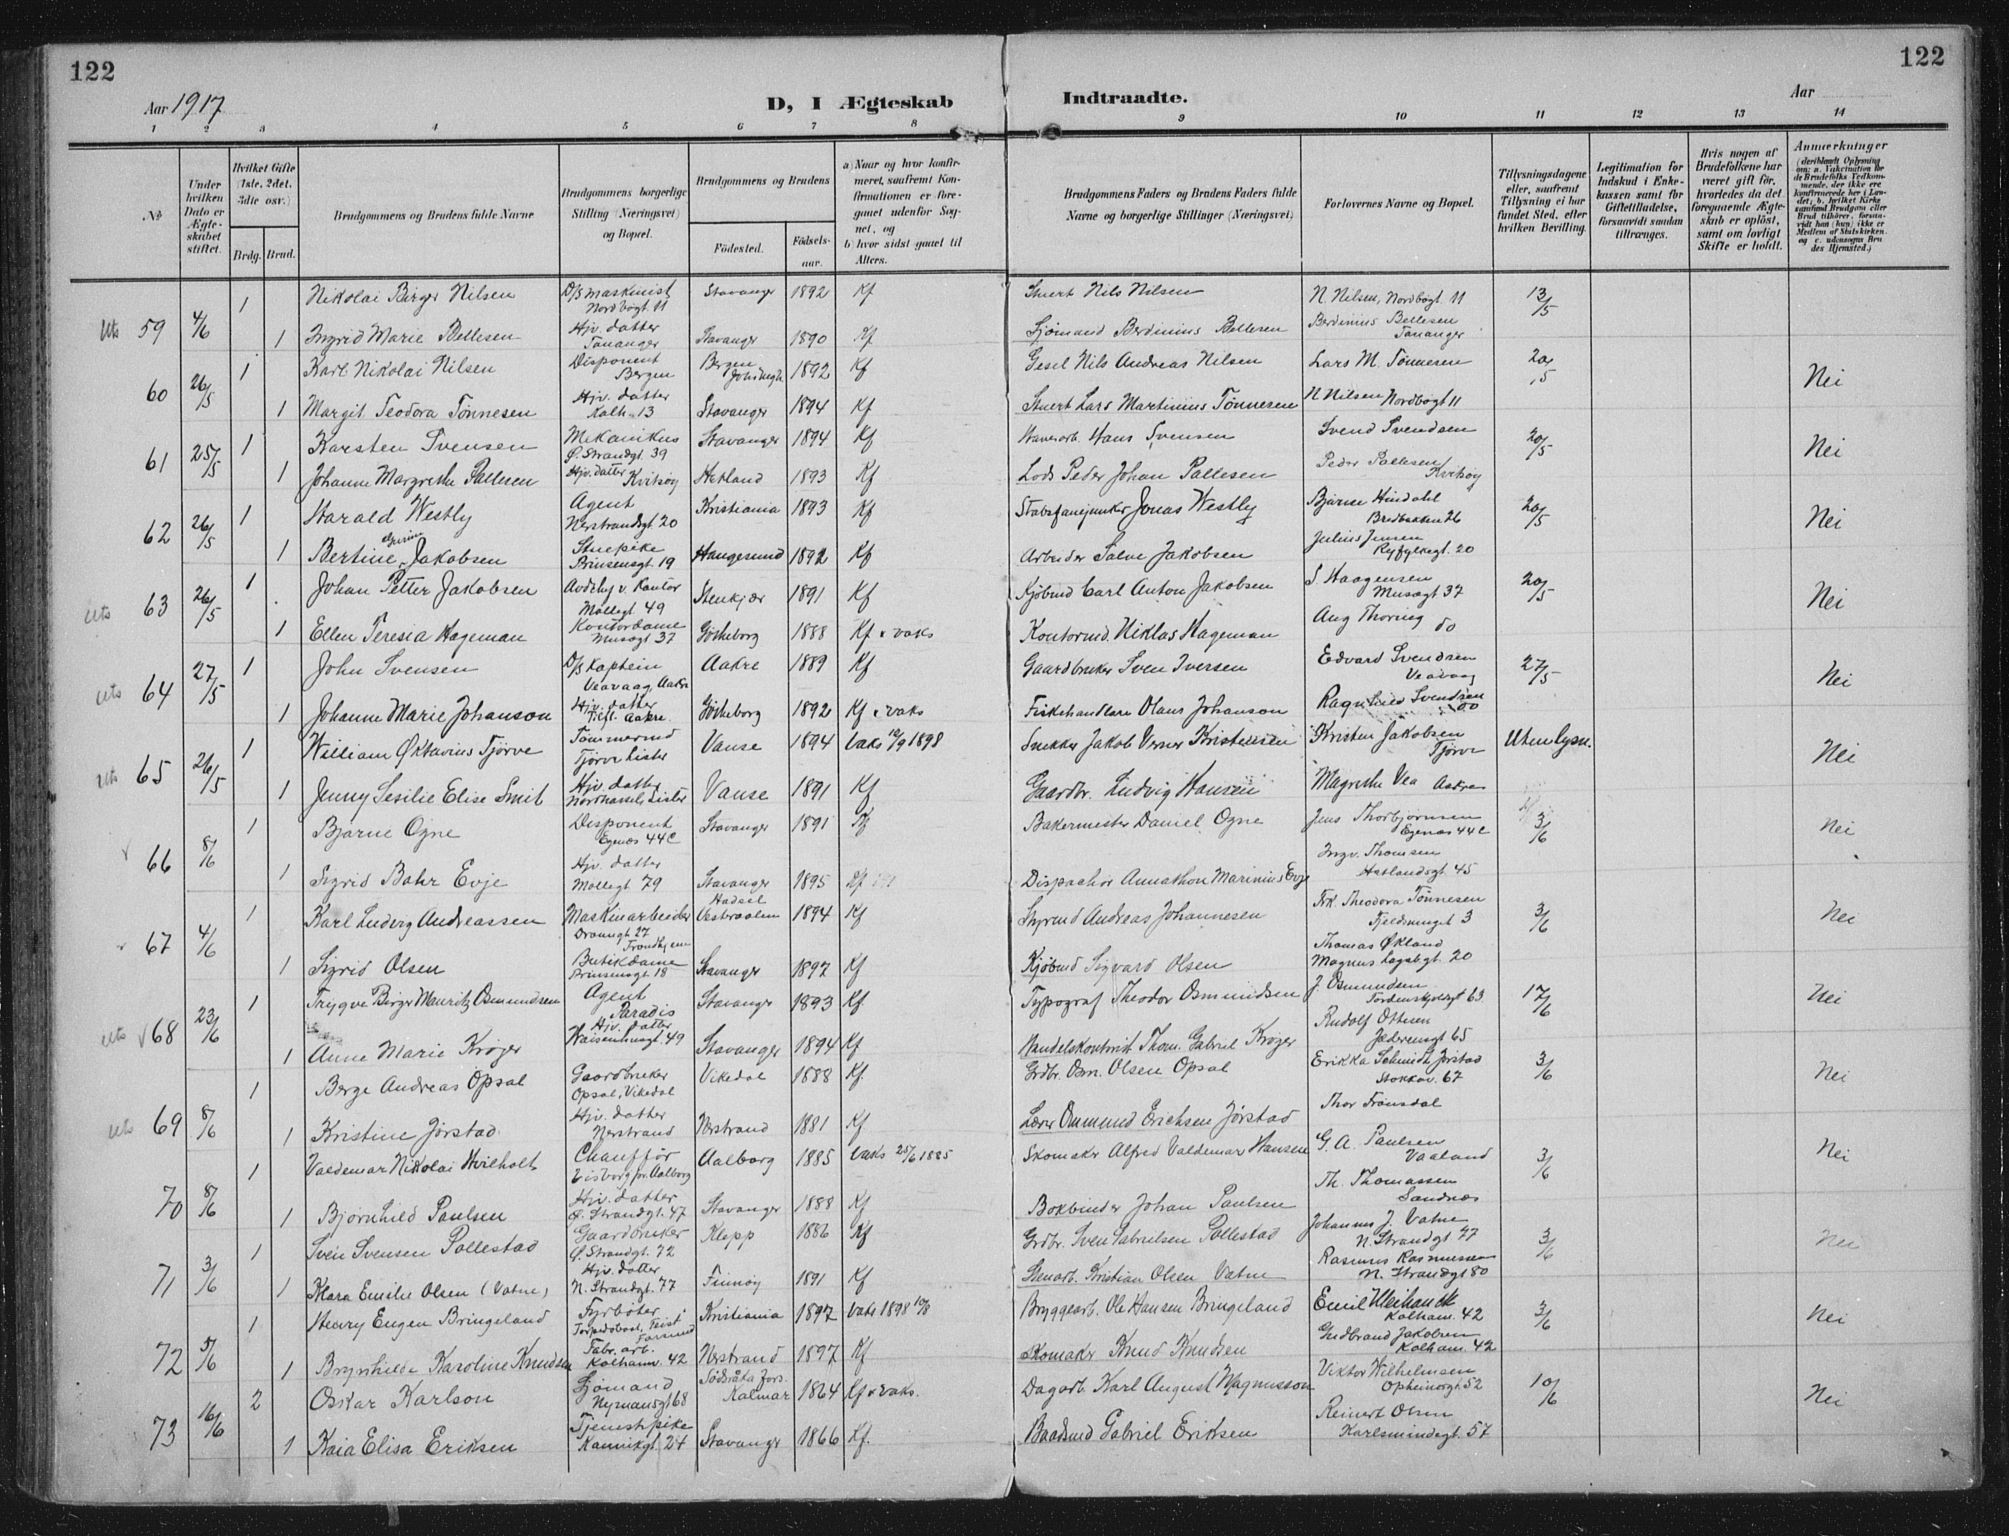 122
122
Aar 1917
D, I Ægteskab
Indtraadte.
Aar
1 2 3 4 5 6 7 8 9 10 11 12 13 14
No
Under hvilken Dato er Ægteskabet stiftet.
Hvilket Gifte (1ste, 2det, 3die osv.)
Brdg. Brud.
Brudgommens og Brudens fulde Navne
Brudgommens borgerlige Stilling (Næringsvei) og Bopæl.
Brudgommens og Brudens
Fødested. Fødsels-aar.
a) Naar og hvor konfirmeret, saafremt Konfirmationen er foregaaet udenfor Sognet, og
b) hvor sidst gaaet til Alters.
Brudgommens Faders og Brudens Faders fulde Navne og borgerlige Stillinger (Næringsvei)
Forlovernes Navne og Bopæl.
Tillysningsdagene eller, saafremt Tillysning ei har fundet Sted, efter hvilken Bevilling.
Legitimation for Indskud i Enkekassen samt for Giftetilladelse, forsaavidt saadan tiltrænges.
Hvis nogen af Brudefolkene har været gift før, hvorledes da det foregaaende Ægteskab er opløst, samt om lovligt Skifte er holdt.
Anmærkninger
uts 59 4/6 1 Nikolai Birger Nilsen D/S maskinist Nordbøgt 11 Stavanger 1892 Kf Stuert Nils Nilsen N. Nilsen, Nordbøgt. 11 13/5
1 Ingrid Marie Bellesen Hjv. datter Tananger Stavanger 1890 Kf Sjømand Berdinius Bellesen Berdinius Bellesen Tananger
60 26/5 1 Karl Nikolai Nilsen Disponent Bergen Bergen 1892 Kf Gesel Nils Andreas Nilsen Lars M. Tønnesen 20/5 Nei
1 Margit Teodora Tønnesen Hjv. datter Kolh. 13 Stavanger 1894 Kf Stuert Lars Martinius Tønnesen N Nilsen Nordbøgt 11
61 25/5 1 Karsten Svensen Mekanikus Ø. Strandgt. 39 Stavanger 1894 Kf Hans Svensen Svend Svendsen 20/5 Nei
1 Johanne Margrethe Pallesen Hjv. datter Kvitsøy Hetland 1893 Kf Lods Peder Johan Pallesen Peder Pallesen Kvitsøy
62 26/5 1 Harald Westly Agent Nerstrandsgt 20 Kristiania 1893 Kf Stabsfanejunker Jonas Westly Bjarne Hindahl Bredbakken 26 20/5 Nei
1 Bertine Jakobsen Stuepike Prinsensgt. 19 Haugesund 1892 Kf Arbeider Salve Jakobsen Julius Jensen Ryfylkegt. 20
uts 63 26/5 1 Johan Petter Jakobsen Avdchef v. Kontor Møllegt 49 Stenkjær 1891 Kf Kjøbmd Carl Anton Jakobsen S. Haagensen Musegt 37 20/5 Nei
1 Ellen Teresia Hageman Kontordame Musegt 37 Göteborg 1888 Kf. vaks Kontormd. Niklas Hageman Aug Thoring do
uts 64 27/5 1 John Svensen D/S Kaptein Veavaag, Aakre Aakre 1889 Kf Gaardbruker Sven Iversen Edvard Svendsen Veavaag 27/5 Nei
1 Johanne Marie Johanson Hjv. datter Aakre Göteborg 1892 Kf. vaks Fiskehandlare Olaus Johanson Svendsen do
uts 65 26/5 1 William Oktavius Tjørve Tømmermd Tjørve Lister Vanse 1894 Vaks 12/9 1898 Snekker Jakob Verner Kristensen Kristen Jakobsen Tjørve Uten lysn. Nei
1 Jenny Sesilie Elise Smit Hjv. datter Nordhassel, Lister Vanse 1891 Kf Gaardbr. Ludvig Hansen Magrethe Vea Aakra
66 8/6 1 Bjarne Ogne Disponent Egenæs 44C Stavanger 1891 Kf Bakermester Daniel Ogne Jens Thorbjørnsen Egenæs 44C 3/6 Nei
1 Sigrid Bahr Evje Hjv. datter Møllegt 79 Stavanger 1895 Kf Dispachør Annathon Marinius Evje Ingv. Thomsen Hetlandsgt. 45
67 4/6 1 Karl Ludvig Andreassen Maskinarbeider Trondhjem Hadsel Vesteraalen 1894 Kf Styrmd Andreas Johannesen Frk. Theodora Tønnesen 3 3/6 Nei
1 Sigrid Olsen Butikdame Prinsensgt. 18 Stavanger 1897 Kf Kjøbmd Sigvard Olsen Thomas Økland Magnus Lagabøgt. 20
uts 68 23/6 1 Trygve Birger Mauritz Osmundsen Agent Paradis Stavanger 1893 Kf Typograf Theodor Osmundsen J. Osmundsen Tordenskjoldsgt 63 17/6 Nei
1 Anne Marie Krøger Hjv. datter Waisenhusgt. 49 Stavanger 1894 Kf Handelskontorist Thom. Gabriel Krøger Rudolf Ottesen Jæderensgt 65
uts 69 8/6 1 Berge Andreas Opsal Gaardbruker Opsal, Vikedal Vikedal 1888 Kf. Grdbr. Osm. Olsen Opsal Erikka Schmidt Jørstad Stokkav. 67 3/6 Nei
1 Kristine Jørstad Hjv. datter Nerstrand Nerstrand 1881 Kf Lærer Ommund Erichsen Jørstad Thor Frønsdal
70 8/6 1 Valdemar Nikolai Hvilholt Chauffør Aalborg Aalborg 1885 Vaks 25/6 1885 Skomaker Alfred Valdemar Hansen G. A. Paulsen Vaaland 3/6 Nei
1 Bjørnhild Paulsen Hjv. datter Ø. Strandgt. 47 Stavanger 1888 Kf Bokbinder Johan Paulsen Th. Thomassen Sandnes
71 3/6 1 Sven Svensen Pollestad Gaardbruker Ø. Strandgt. 72 Klepp 1886 Kf Grdbr. Sven Gabrielsen Pollestad Johannes J. Vatne N. Strandgt 77 3/6 Nei
1 Klara Emilie Olsen (Vatne) Hjv. datter N. Strandgt. 77 Finnøy 1891 Kf Stenarb. Kristian Olsen Vatne Rasmus Rasmussen N. Strandgt 80
72 5/6 1 Henry Eugen Bringeland Fyrbøter Torpedobaat Kristiania 1897 Vaks 1898 Bryggearb. Ole Hansen Bringeland Emil Kolham. 42 3/6 Nei
1 Brynhilde Karoline Knudsen Fabr. arb. Kolham. 42 Nerstrand 1897 Kf Skomaker Knud Knudsen Gudbrand Jakobsen Kolham. 42
73 16/6 2 Oskar Karlson Sjømand Nymansgt 68 Kalmar 1864 Kf. vaks. Dagarb. Karl August Magnusson Viktor Wilhelmsen Opheimsgt. 52 10/6 Nei
1 Kaia Elisa Eriksen Tjenestpike Kannikgt. 24 Stavanger 1866 Kf. Baadsmd Gabriel Eriksen Reinert Olsen Karlsmindegt. 57